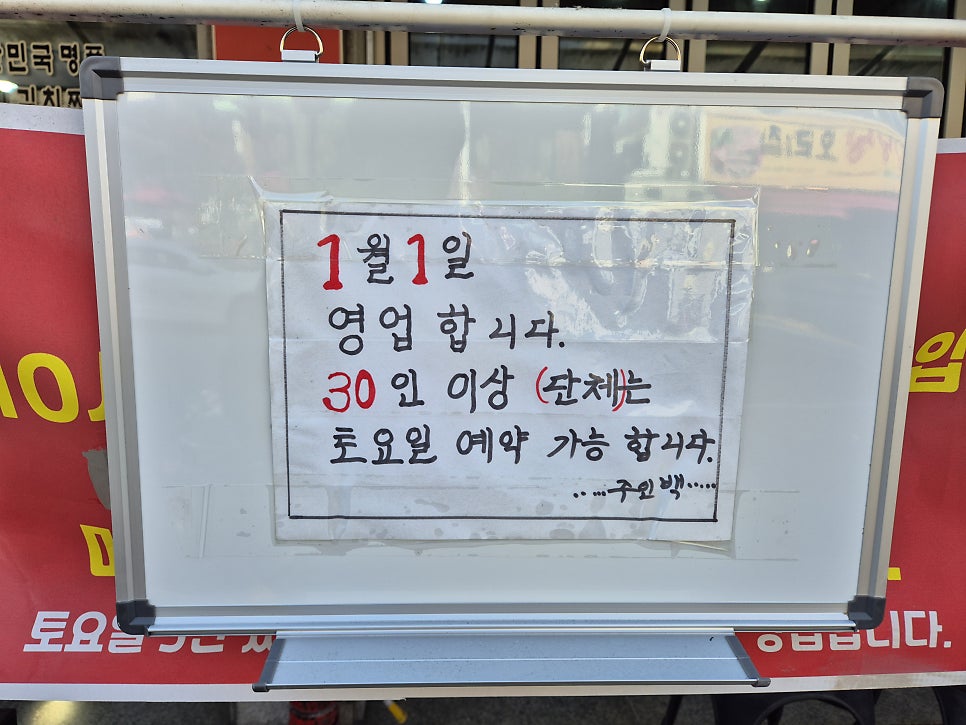 민국명품
김치찌
1월 1일
영업 합니다.
30인 이상 (단체)는
토요일 예약 가능 합니다.
.....주인백.....
입
토요일
영업합니다.